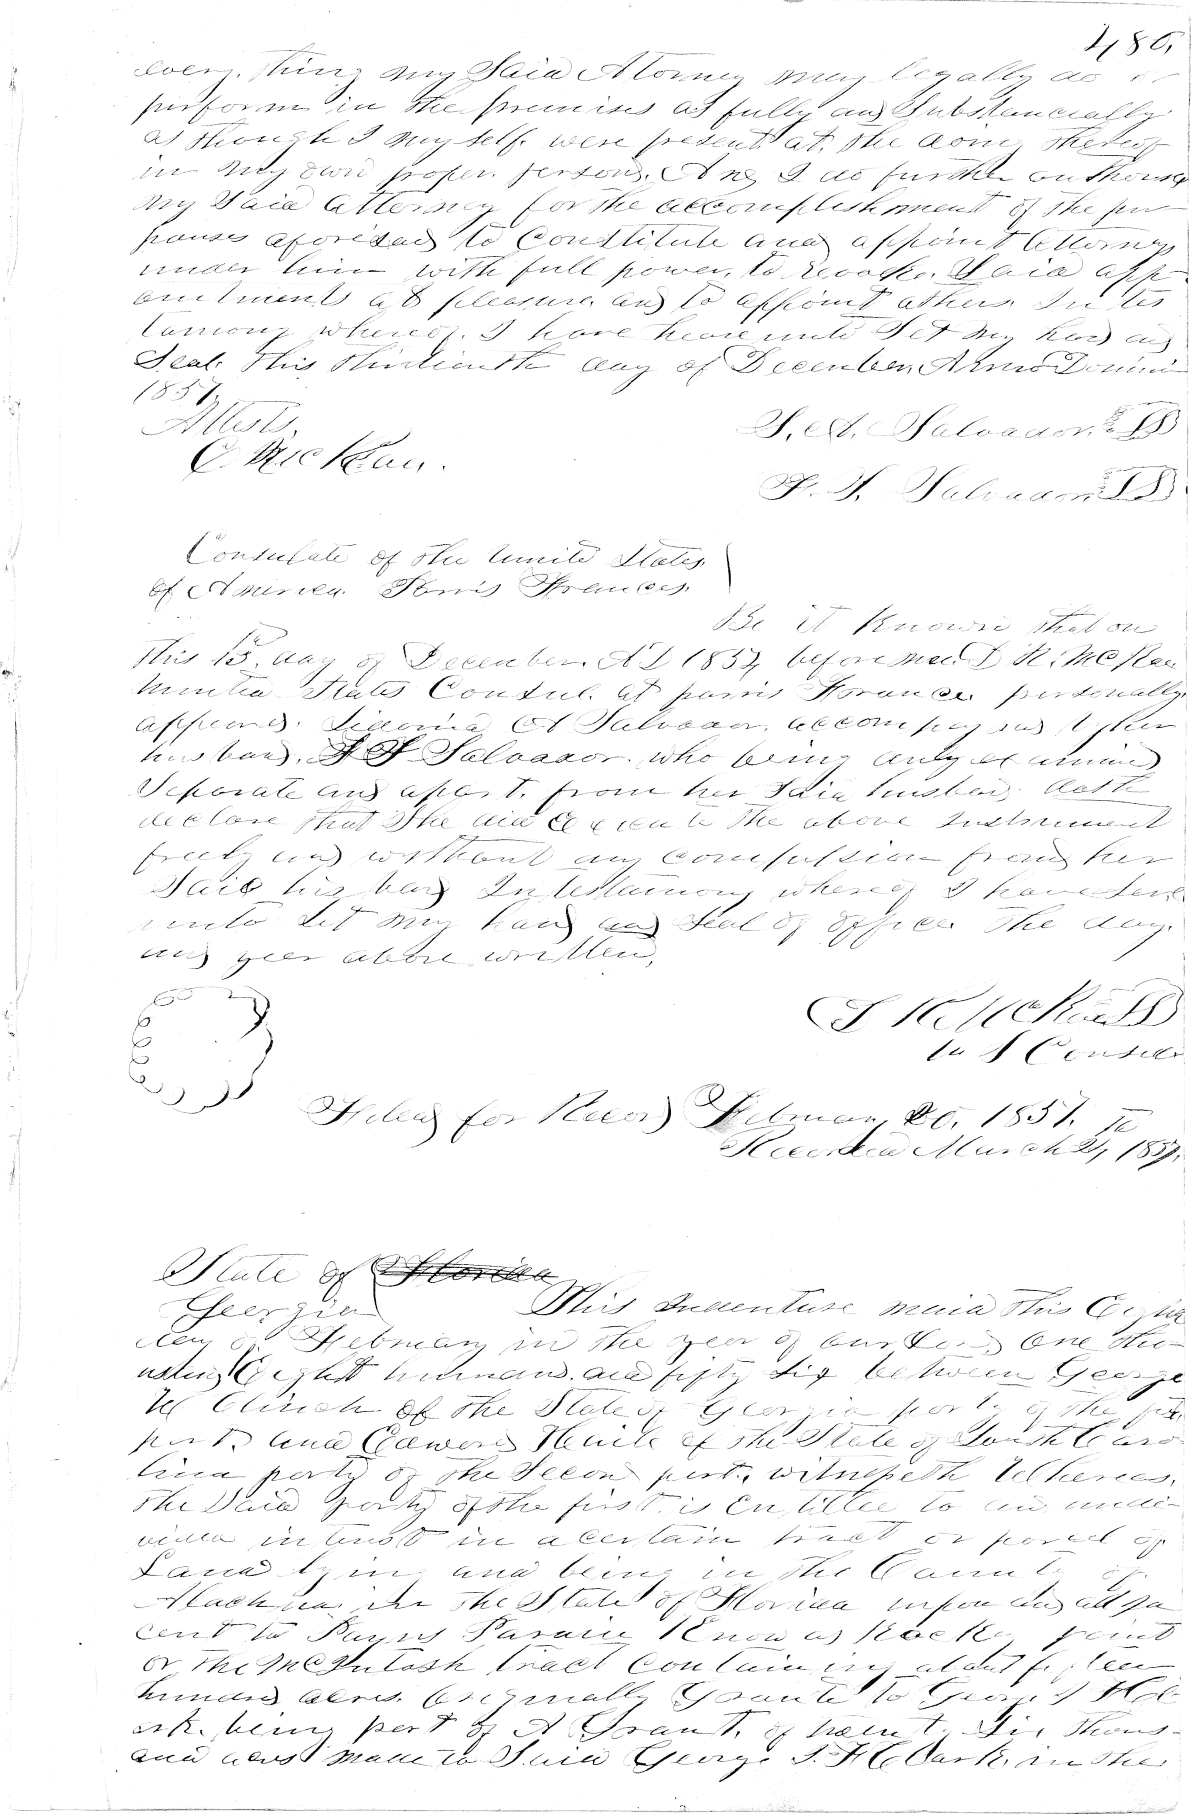 480,
every thing my Said Attorney may legally do or
perform in the premises as fully and Substancially
as though I myself were present at the doing thereof
in my own proper person. And I do further authorise
my Said Attorney for the accomplishment of the pur
pouses aforesad to Constitute and appoint Attorneys
under him with full power, to revoke Said app
ointments at pleasure and to appoint others In tes
tamony whereof I have hereunto Set my hand and
Seal this thirtienth day of December, Anno Domini
1857,
Attests.
C. McKean.
S. A. Salvador. LS
F. F. Salvador LS
Consulate of the United States
of America. Parris Frances.
Be it Known that on
this 15th day of December. AD 1857, before me D K. McRae
United States Consul. at parris France. personally
appeared. A Salvador. accompanied by her
husband. F F Salvador. who being duly examined
Separate and apart. from her Said husband. doth
declare that She did Execute the above Instrument
freely and without any compulsion from her
Said husband In testamony whereof I have here
unto Set my hand and Seal of office the day.
and year above written,
D K. McRae LS
U S Consul
Filed for Record February 20, 1857. &
Recorded March 21, 1857.
State of Florida
Georgia
This Indenture maid this Eight
day of February in the year of our Lord One tho-
usand Eight hundred and fifty Six between George
W Clinch of the State of Georgia party of the first
part. and Edward Haile of the State of South Caro-
lina party of the Second part, witnesseth Whereas.
the Said party of the first is Entitled to an undi-
vided interest in a certain tract or parcel of
Land lying and being in the County of
Alachua in the State of Florida upon and adja
cent to Payns Pararie Know as Rocky point
or the McIntosh tract containing about fifteen
hundred acres. Originally Granted to George I F Cl-
ark. being part of A Grant. of twent Six thous-
and acres made to Said George I. F Clark. in the